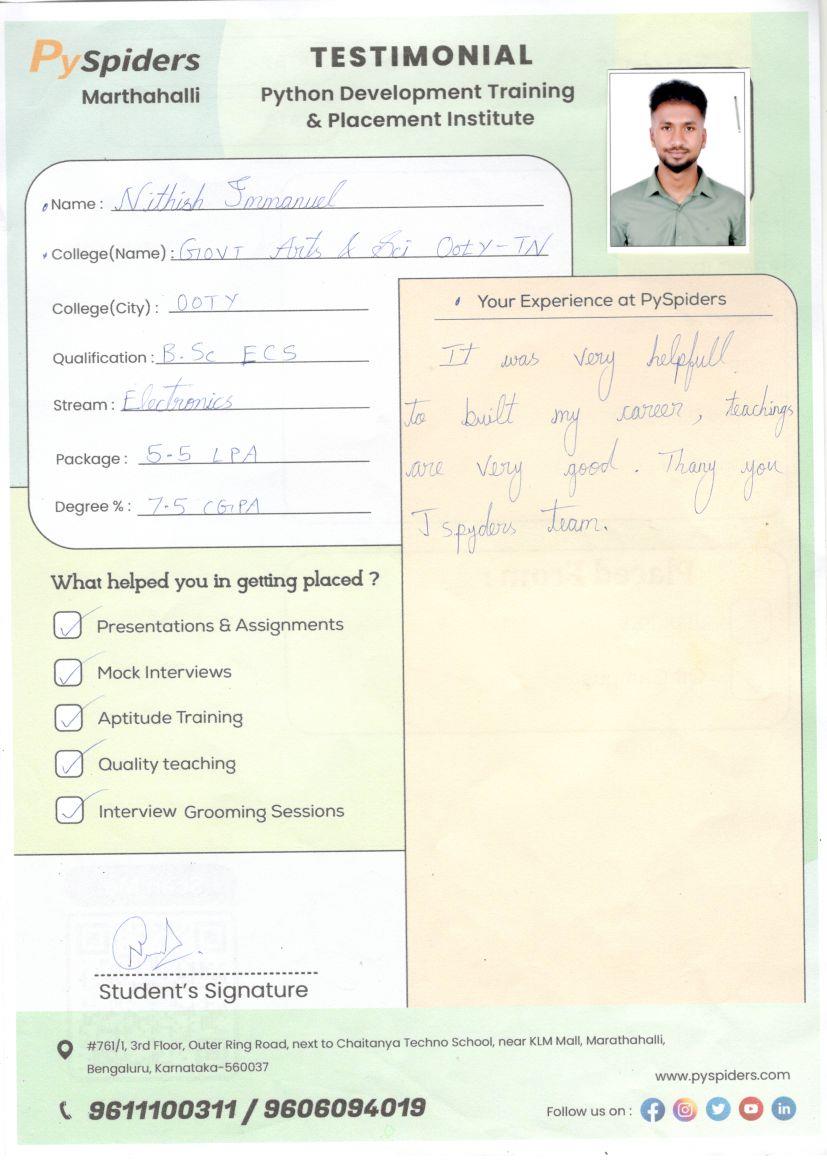 PySpiders
Marthahalli
TESTIMONIAL
Python Development Training
& Placement Institute
Name : Nithish Immanuel
College(Name) : GOVT Arts & Sci OOTY-TN
College(City) : OOTY
Qualification : B.Sc ECS
Stream : Electronics
Package : 5-5 LPA
Degree % : 7.5 CGPA
Your Experience at PySpiders
It was very helpfull
to built my career, teachings
are very good. Thany you
J spyders team.
What helped you in getting placed ?
Presentations & Assignments
Mock Interviews
Aptitude Training
Quality teaching
Interview Grooming Sessions
Student's Signature
#761/1, 3rd Floor, Outer Ring Road, next to Chaitanya Techno School, near KLM Mall, Marathahalli,
Bengaluru, Karnataka-560037
9611100311 / 9606094019
www.pyspiders.com
Follow us on :